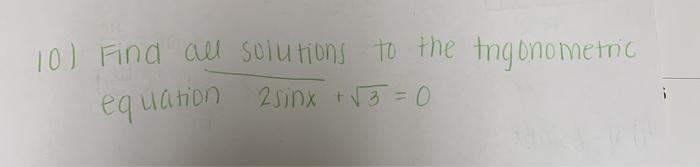 10) Find all solutions to the trigonometric
equation 2sinx + √3 = 0